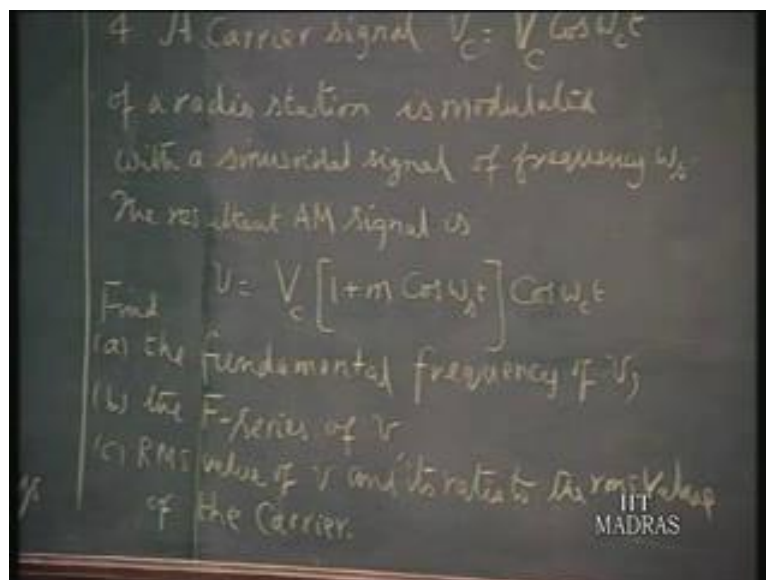 4 A Carrier signal V_C = V_C Cos ω_c t
of a radio station is modulated
with a sinusoidal signal of frequency ω_s
The resultant AM signal is
v = V_c [1+m Cos ω_s t] Cos ω_c t
Find
(a) the fundamental frequency of v,
(b) the F-series of v
(c) RMS value of v and its ratio to the rms value
of the Carrier.
IIT
MADRAS